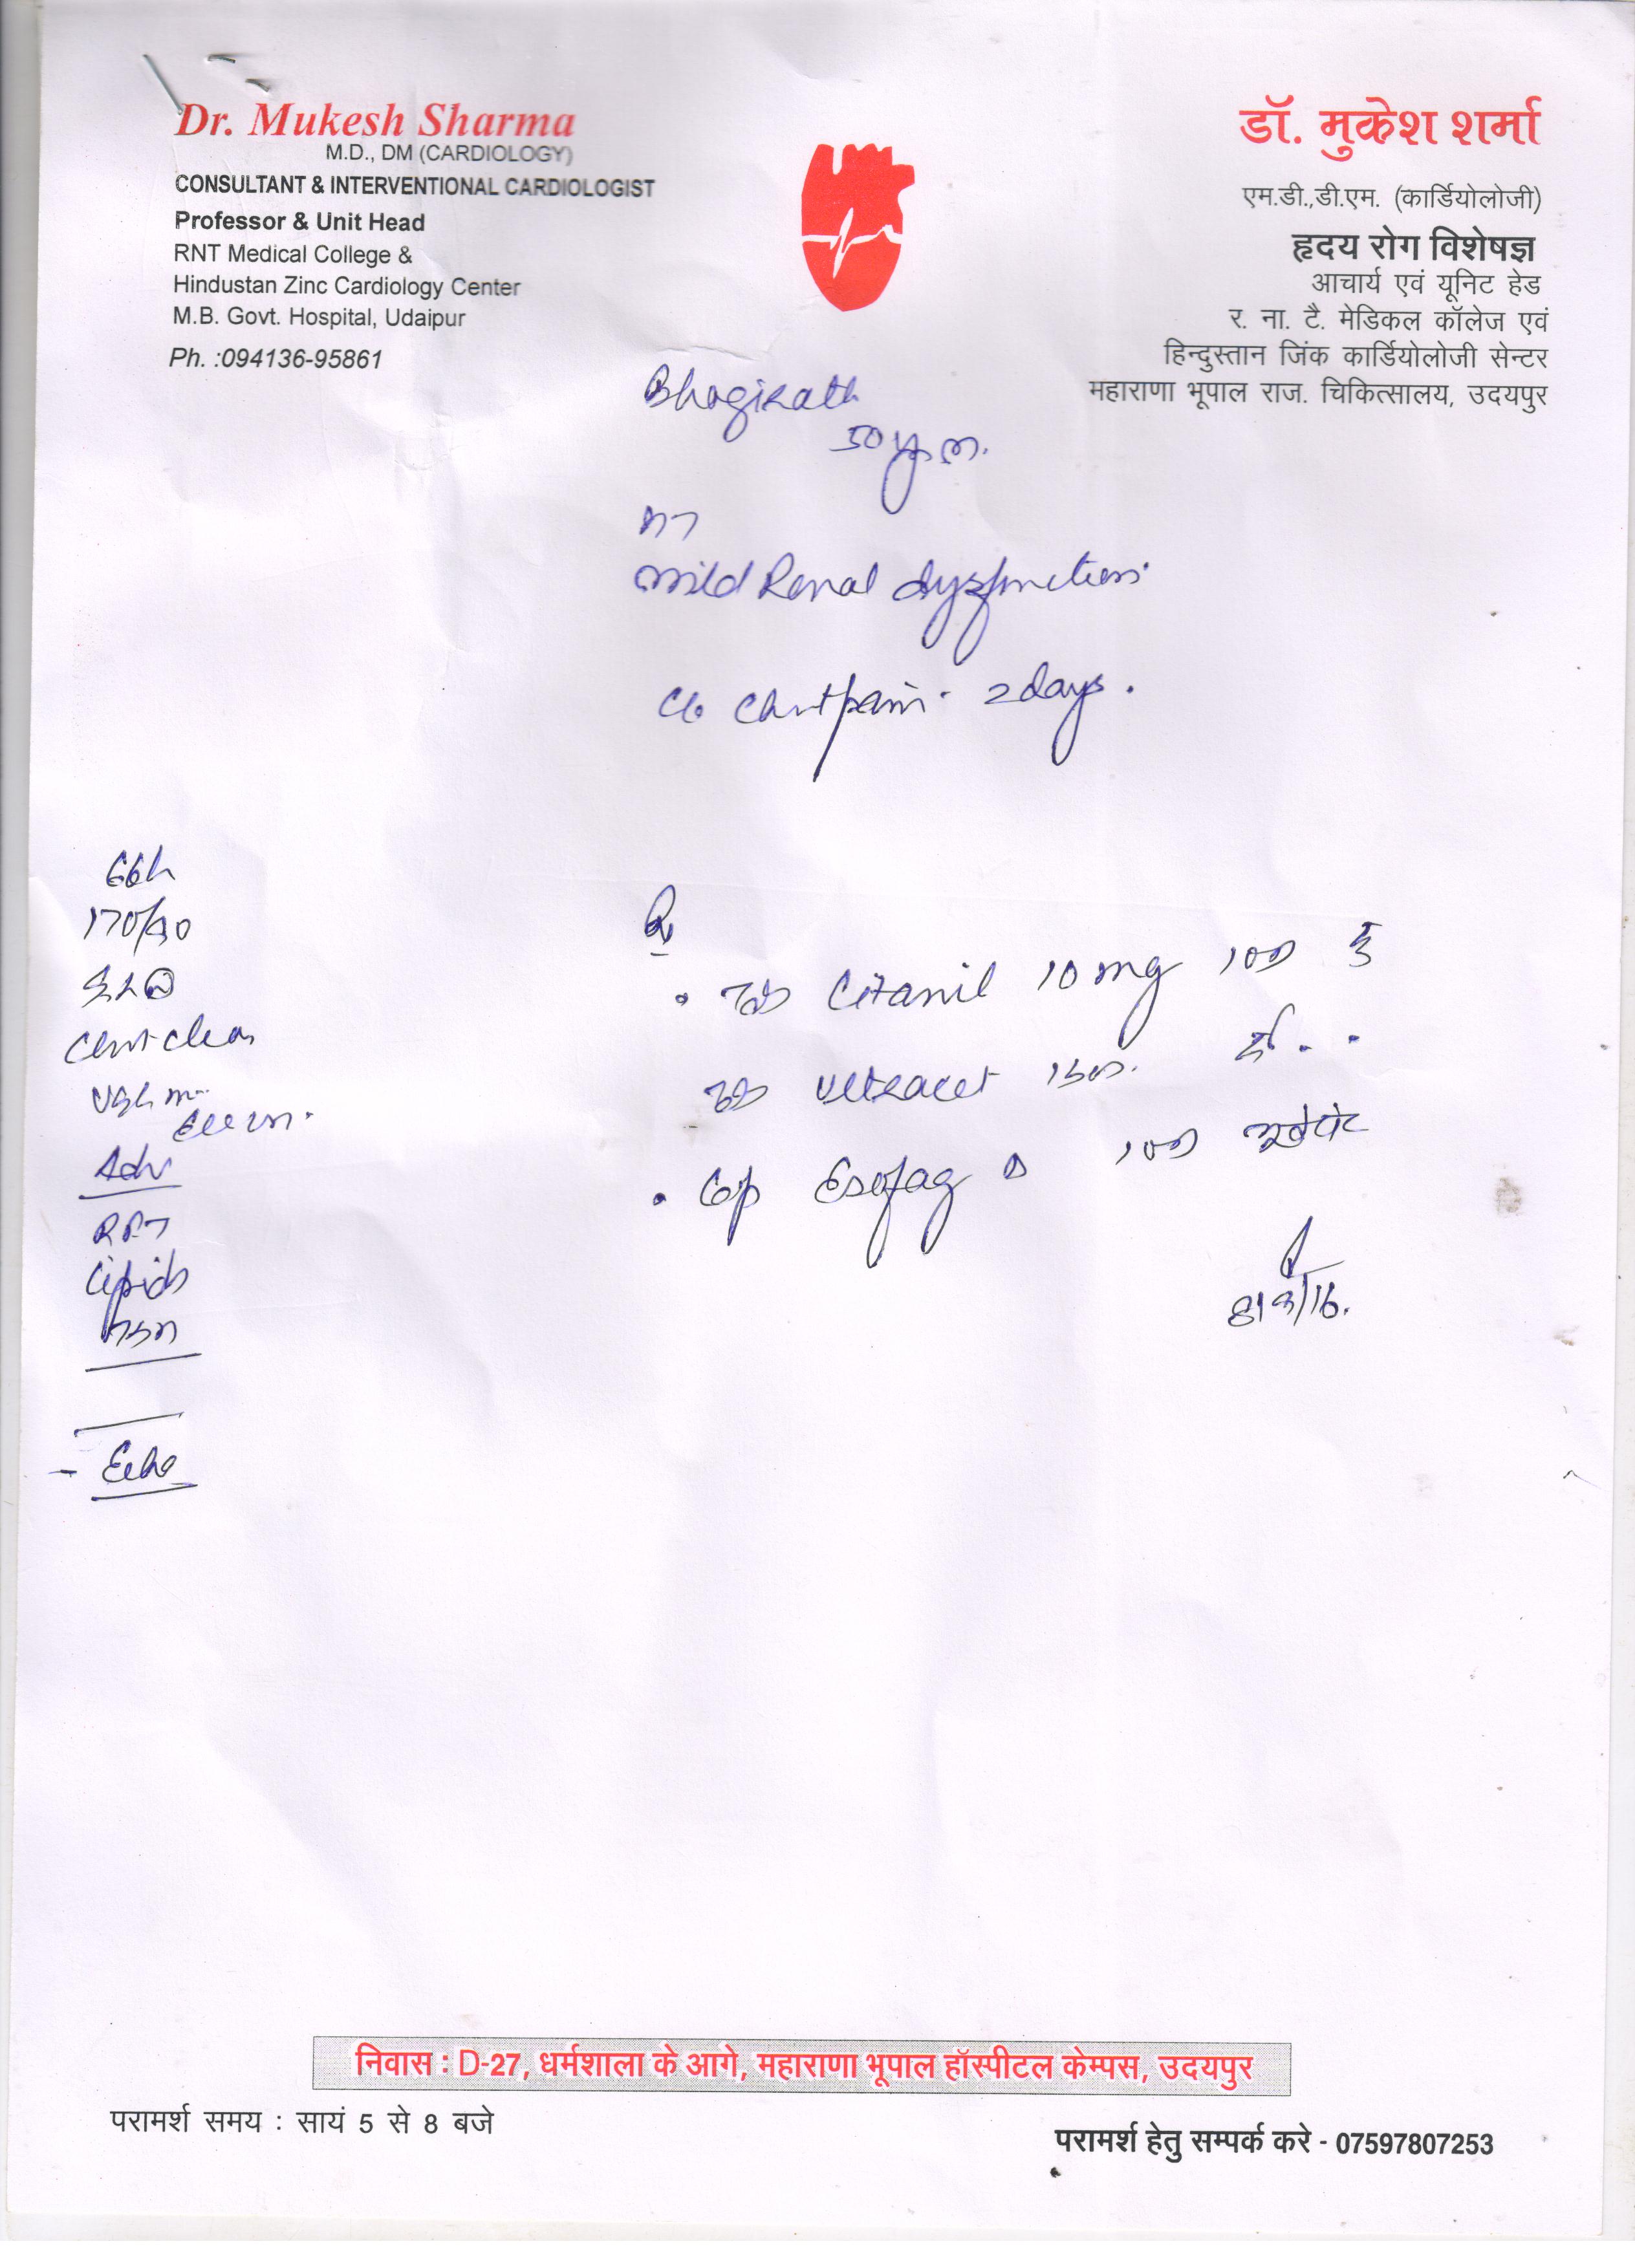 Dr. Mukesh Sharma
M.D., DM (CARDIOLOGY)
CONSULTANT & INTERVENTIONAL CARDIOLOGIST
Professor & Unit Head
RNT Medical College &
Hindustan Zinc Cardiology Center
M.B. Govt. Hospital, Udaipur
Ph. :094136-95861
डॉ. मुकेश शर्मा
एम.डी.,डी.एम. (कार्डियोलोजी)
हृदय रोग विशेषज्ञ
आचार्य एवं यूनिट हेड
र. ना. टै. मेडिकल कॉलेज एवं
हिन्दुस्तान जिंक कार्डियोलोजी सेन्टर
महाराणा भूपाल राज. चिकित्सालय, उदयपुर
Bhagirath
50 yr m.
Mild Renal dysfunction.
C/o Chest pain. 2 days.
170/90
Chest clear
Adv
RFT
Lipids
Echo
Rx
Tab 10 mg
Tab Ultracet
Cap Esofag D
16.
निवास : D-27, धर्मशाला के आगे, महाराणा भूपाल हॉस्पीटल केम्पस, उदयपुर
परामर्श समय : सायं 5 से 8 बजे
परामर्श हेतु सम्पर्क करे - 07597807253